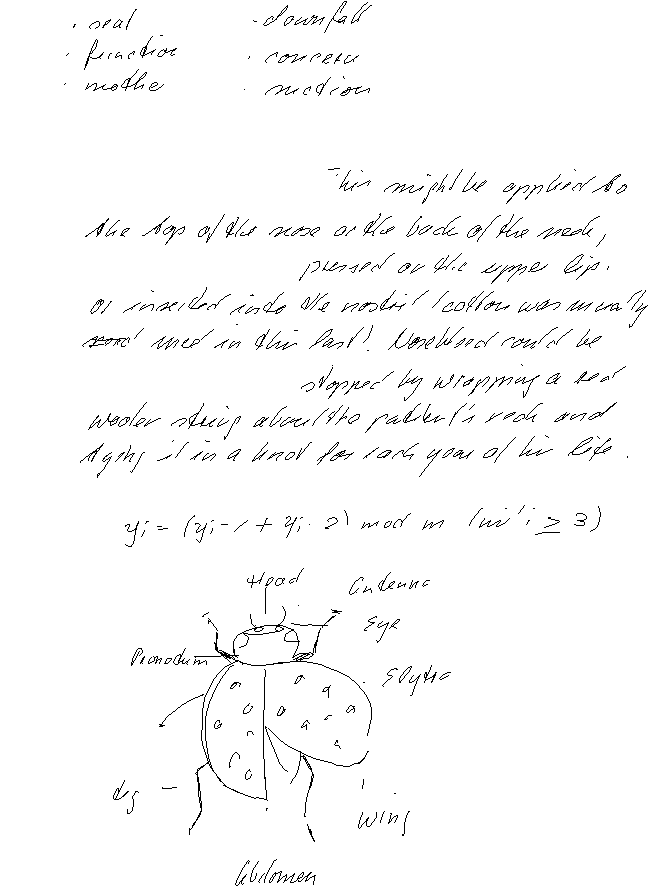 · seal
· function
· mothe
· downfall
· concern
· suction
This might be applied to
the top of the nose or the back of the neck,
pressed on the upper lip.
or inserted into the nostril (cotton was usually
used in this last). Nosebleed could be
stopped by wrapping a red
woolen string about the patient's neck and
tying it in a knot for each year of his life.
yi = (yi-1 + yi-2) mod m (für i ≥ 3)
Head
Antenna
Eye
Pronotum
Elytra
Leg
Wing
Abdomen